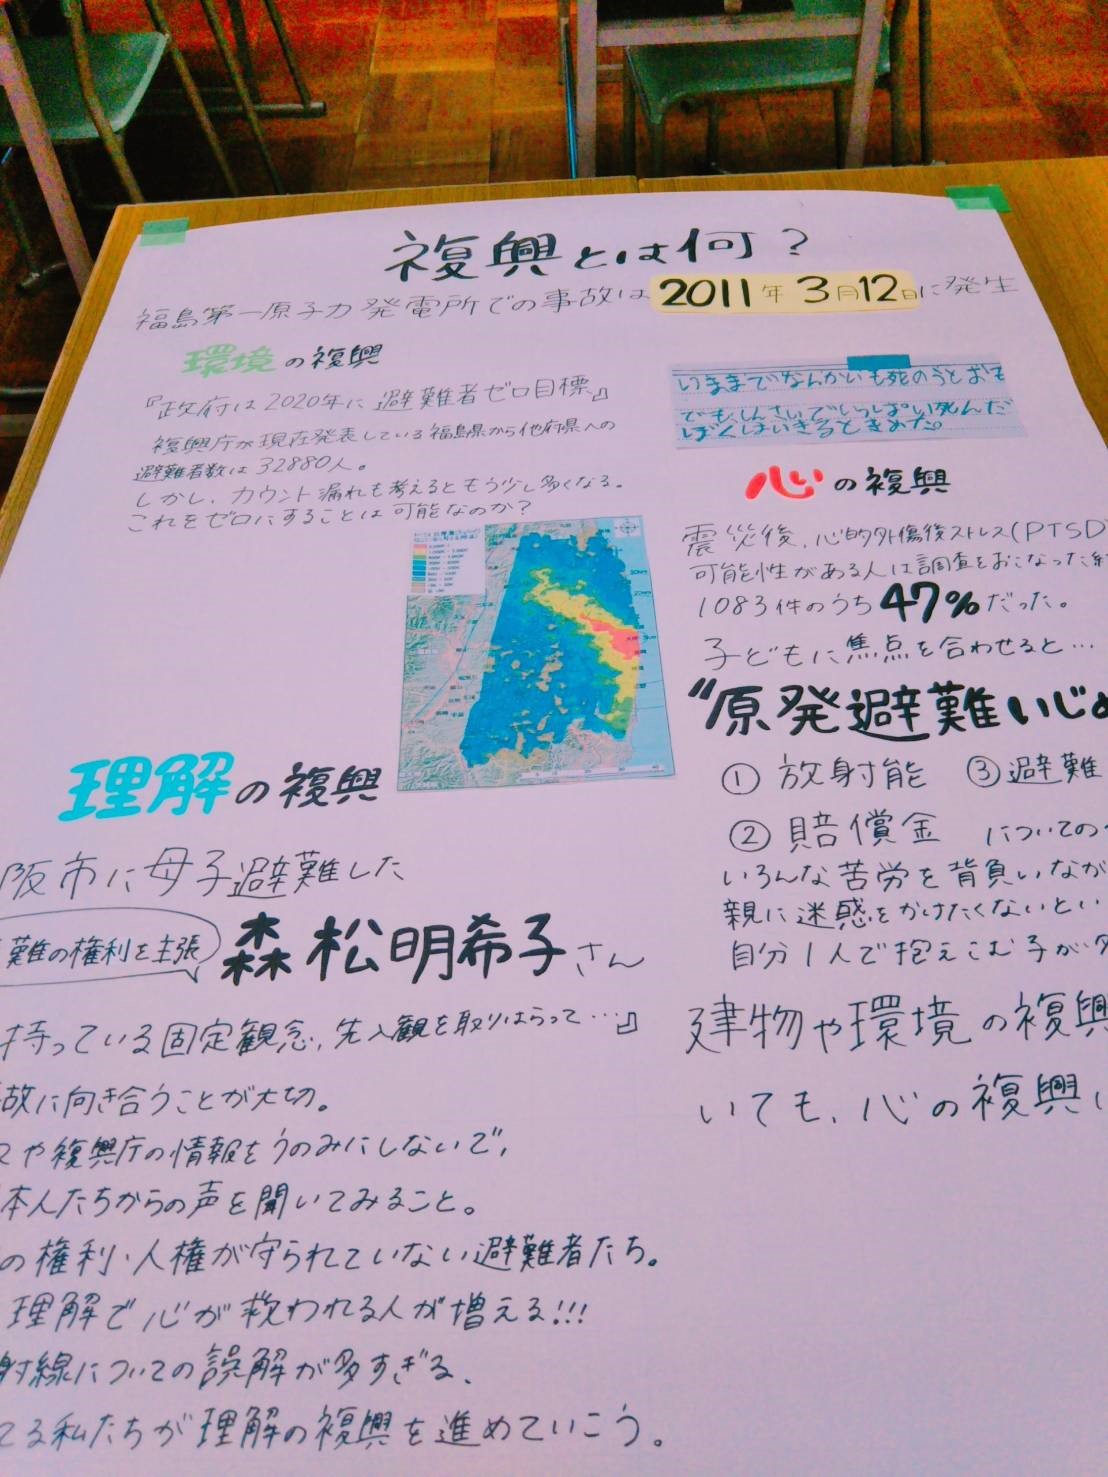 複興とは何？
福島第一原子力発電所での事故は2011年3月12日に発生
環境の複興
『政府は2020年に避難者ゼロ目標』
複興庁が現在発表している福島県から他府県への
避難者数は32880人。
しかし、カウント漏れも考えるともう少し多くなる。
これをゼロにすることは可能なのか？
いままでなんかいも死のうとおも
でも、しんさいでいっぱい死んだ
ぼくはいきるときめた。
心の複興
震災後、心的外傷後ストレス(PTSD)
可能性がある人は調査をおこなった
1083件のうち47%だった。
子どもに焦点を合わせると…
"原発避難いじめ
① 放射能 ③避難
② 賠償金 についての
いろんな苦労を背負いなが
親に迷惑をかけたくないとい
自分1人で抱えこむ子が
建物や環境の複興
いても、心の複興
理解の複興
阪市に母子避難した
難の権利を主張
森松明希子さん
持っている固定観念、先入観を取りはらって…』
故に向き合うことが大切。
や複興庁の情報をうのみにしないで、
本人たちからの声を聞いてみること。
の権利・人権が守られていない避難者たち。
理解で心が救われる人が増える!!!
射線についての誤解が多すぎる、
てる私たちが理解の複興を進めていこう。